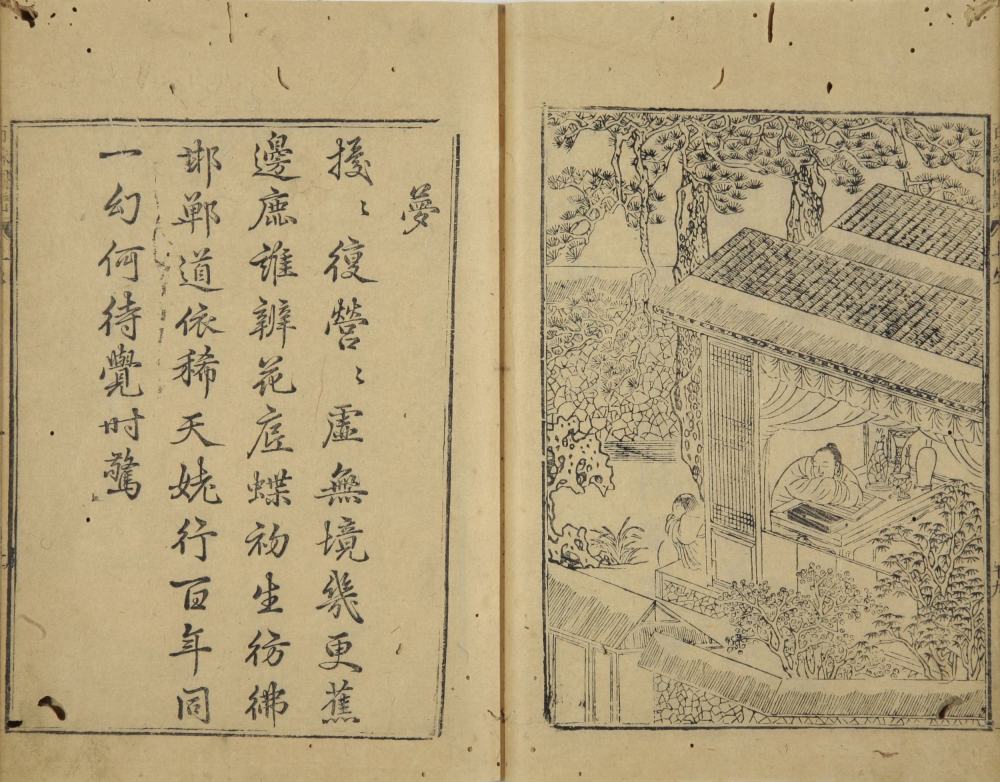 夢
擾〻復營〻虛無境幾更蕉
邊鹿誰辨花底蝶初生彷彿
邯鄲道依稀天姥行百年同
一幻何待覺时驚